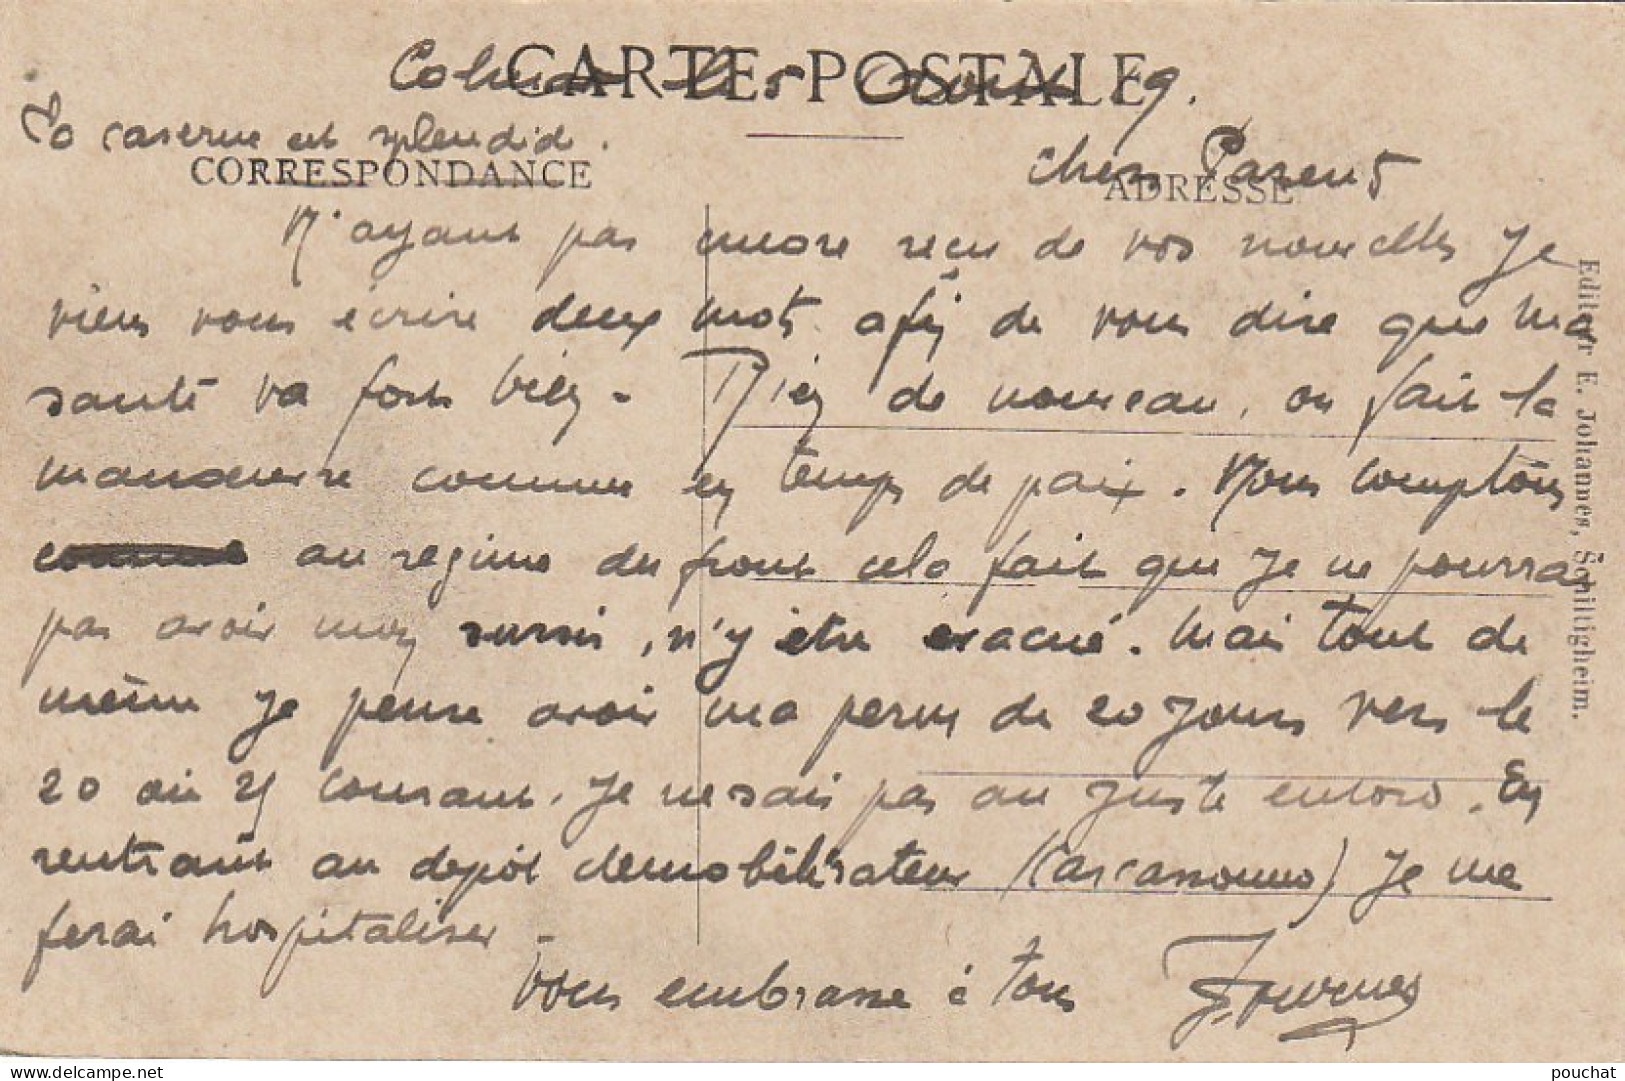 CARTE POSTALE
Colmar le 5 Aout 19.
La caserne est splendide.
CORRESPONDANCE
ADRESSE
Chers Parents
N'ayant pas encore reçu de vos nouvelles Je
viens vous écrire deux mots afin de vous dire que ma
santé va fort bien - Rien de nouveau, on fait la
manoeuvre comme en temps de paix. Nous comptons
comme au regime du front cela fait que Je ne pourrai
pas avoir mon sursis, n'y être evacué. Mais tout de
même Je pense avoir ma perm de 20 Jours vers le
20 ou 25 courant. Je ne sais pas au Juste encore. En
rentrant au depôt demobilisateur (Carcassonne) Je me
ferai hospitaliser -
Vous embrasse à tous
Editeur E. Johannes, Schiltigheim.
delcampe.net
pouchat